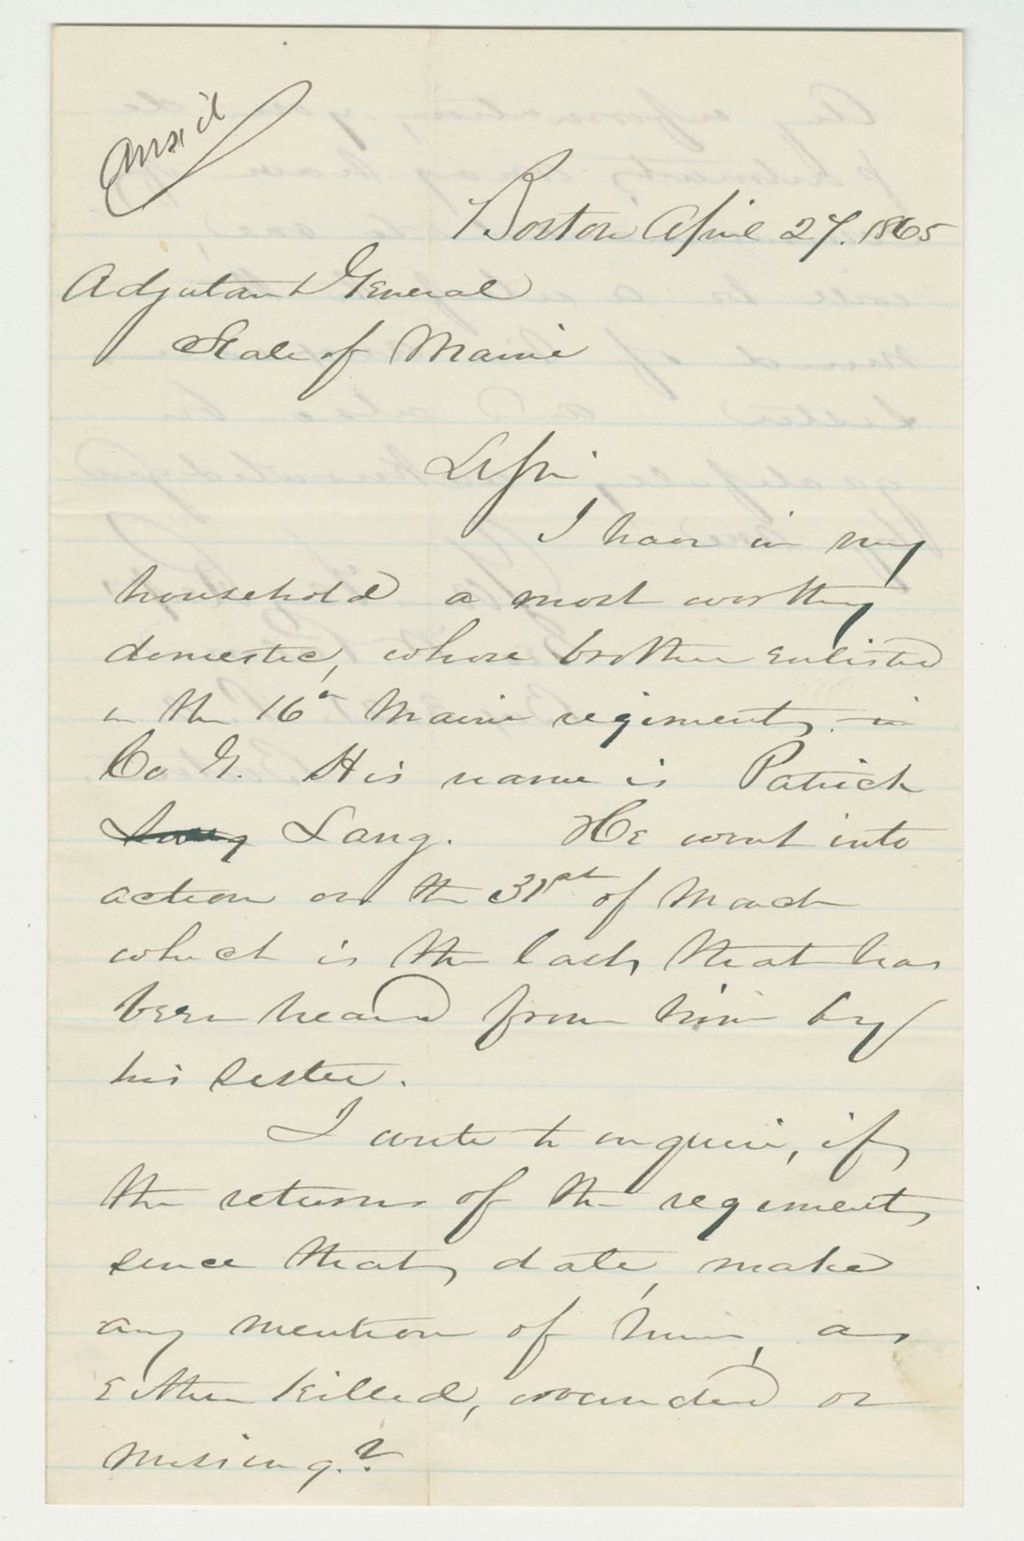 Boston April 27. 1865
Adjutant General
State of Maine
Sir,
I have in my
household a most worthy
domestic, whose brother enlisted
in the 16th Maine regiment, in
Co G. His name is Patrick
Lang. He went into
action on the 31st of March
which is the last, that has
been heard from him by
his sister.
I write to enquire, if,
the returns of the regiment,
since that, date, make
any mention of him, as
either killed, wounded or
missing.?